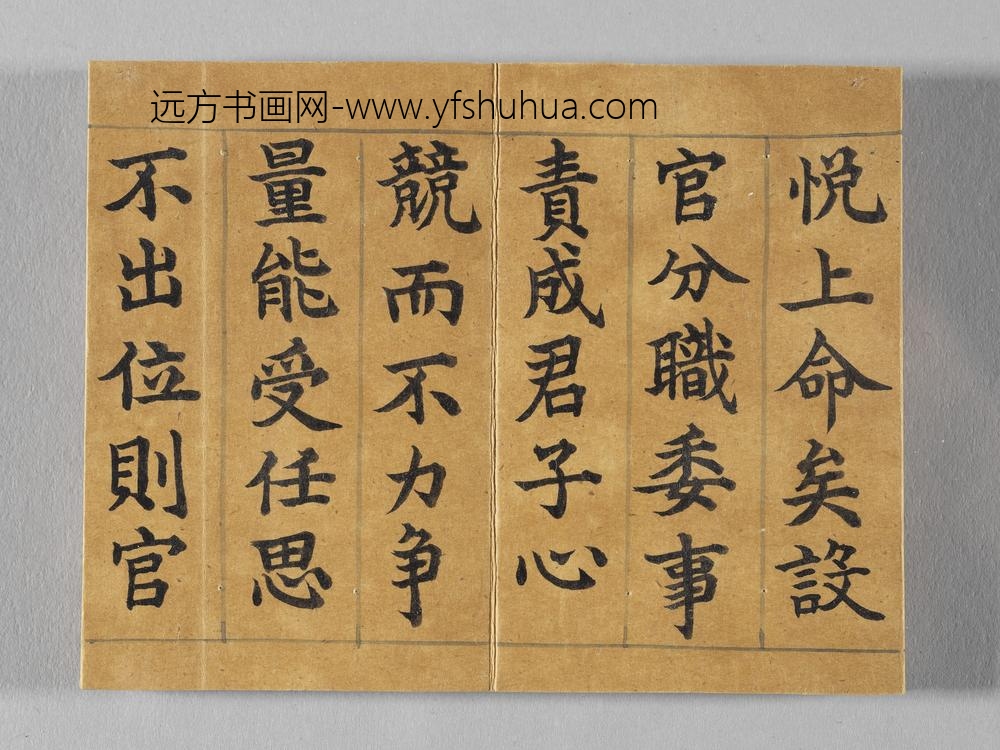 远方书画网-www.yfshuhua.com
悦上命矣設
官分職委事
責成君子心
競而不力争
量能受任思
不出位則官